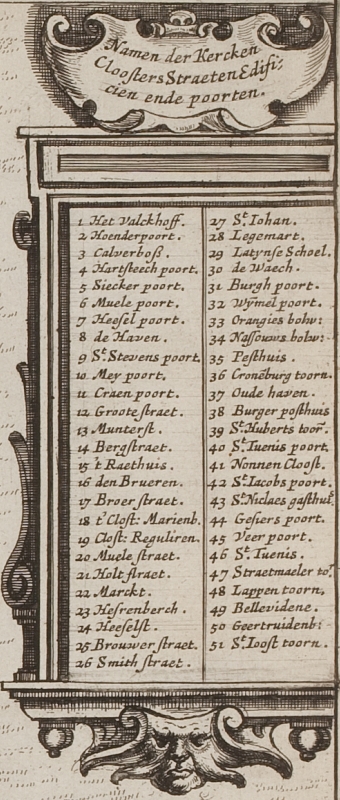 Namen der Kercken
Cloosters Straeten Edifi:
cien ende poorten.
1 Het Valckhoff.
2 Hoenderpoort.
3 Calverboß.
4 Hartsteech poort.
5 Siecker poort.
6 Muele poort.
7 Heesel poort.
8 de Haven.
9 St. Stevens poort.
10 Mey poort.
11 Craen poort.
12 Groote straet.
13 Munterst.
14 Bergstraet.
15 't Raethuis.
16 den Brueren.
17 Broer straet.
18 t' Clost: Marienb.
19 Clost: Reguliren.
20 Muele straet.
21 Holt straet.
22 Marckt.
23 Hesrenberch.
24 Heeselst.
25 Brouwer straet.
26 Smith straet.
27 St. Iohan.
28 Legemart.
29 Latynse Schoel.
30 de Waech.
31 Burgh poort.
32 Wymel poort.
33 Orangies bolw:
34 Nassouws bolw:
35 Pesthuis.
36 Cronẽburg toorn.
37 Oude haven.
38 Burger posthuis
39 St. Huberts toor̃.
40 St. Tuenis poort.
41 Nonnen Cloost.
42 St. Iacobs poort.
43 St. Niclaes gasthuẽ
44 Gesiers poort.
45 Veer poort.
46 St. Tuenis.
47 Straetmaeler to'.
48 Lappen toorn.
49 Bellevidene.
50 Geertruidenb:
51 St. Ioost toorn.